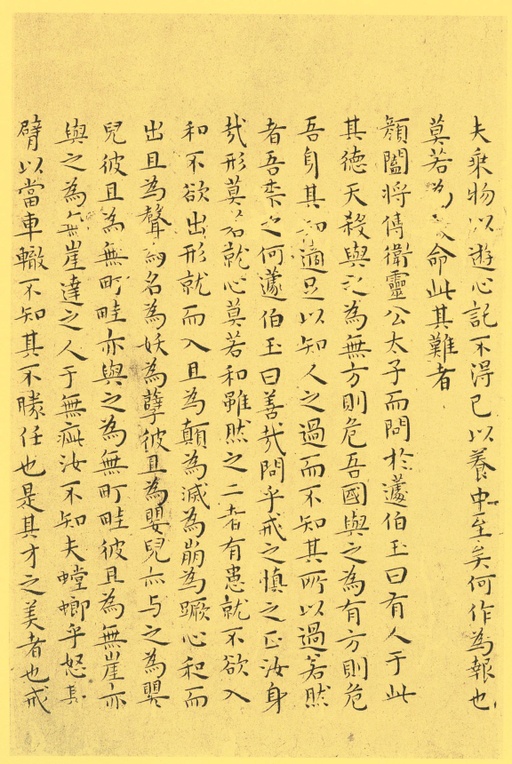 夫乗物以遊心託不得已以養中至矣何作為報也
莫若為致命此其難者
顏闔將傅衛靈公太子而問於蘧伯玉曰有人于此
其徳天殺與之為無方則危吾國與之為有方則危
吾身其知適足以知人之過而不知其所以過若然
者吾柰之何蘧伯玉曰善哉問乎戒之慎之正汝身
哉形莫若就心莫若和雖然之二者有患就不欲入
和不欲出形就而入且為顛為滅為崩為蹶心和而
出且為聲為名為妖為孽彼且為嬰兒亦与之為嬰
兒彼且為無町畦亦與之為無町畦彼且為無崖亦
與之為無崖達之人于無疵汝不知夫螳螂乎怒其
臂以當車轍不知其不勝任也是其才之美者也戒